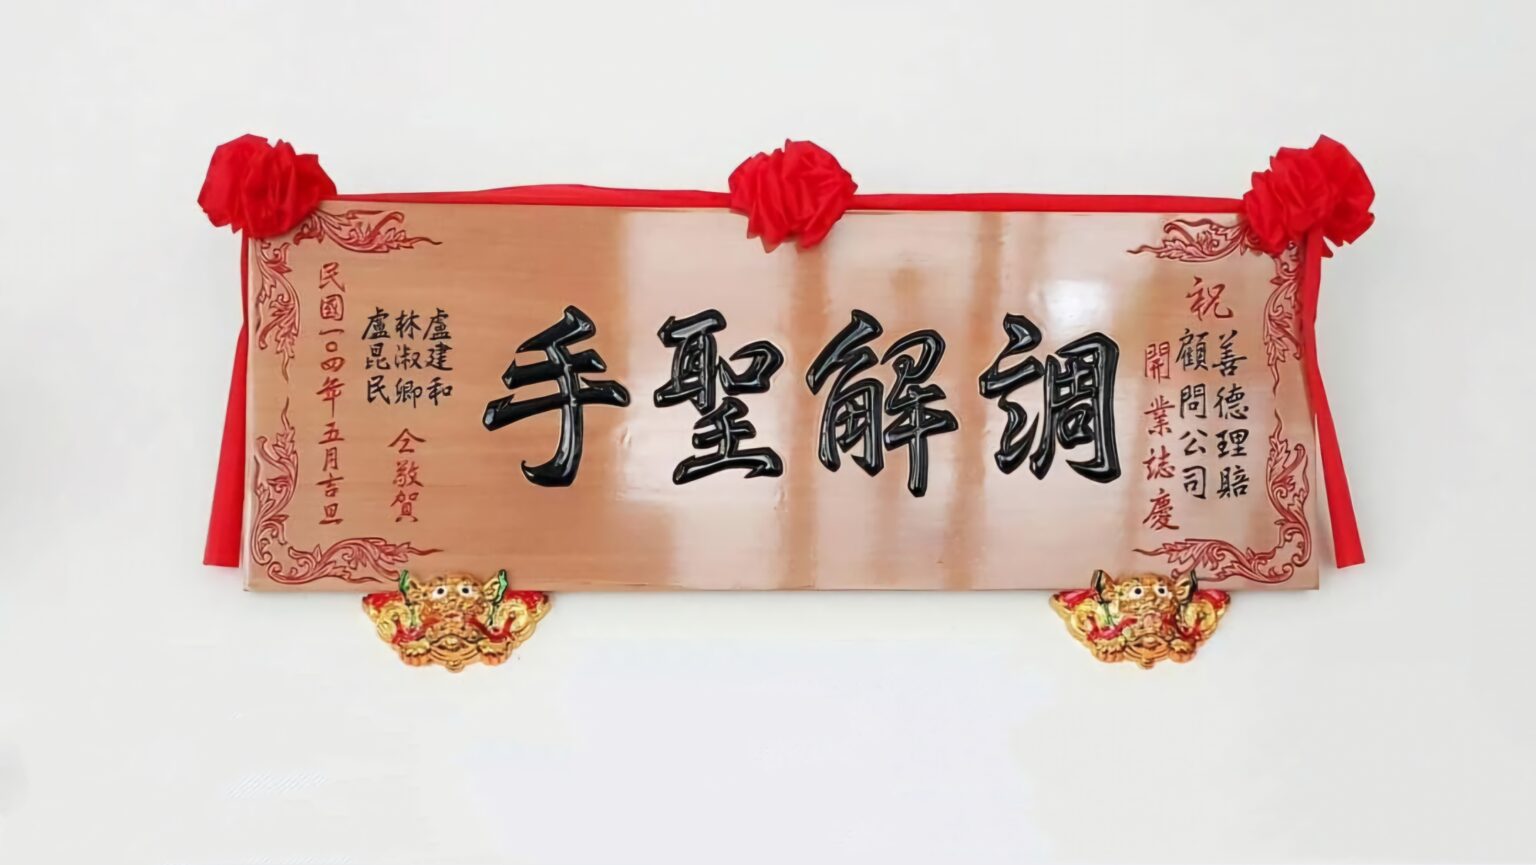 祝
善德理賠
顧問公司
開業誌慶
調解聖手
盧建和
林淑卿
盧昆民
仝敬賀
民國一〇四年五月吉旦